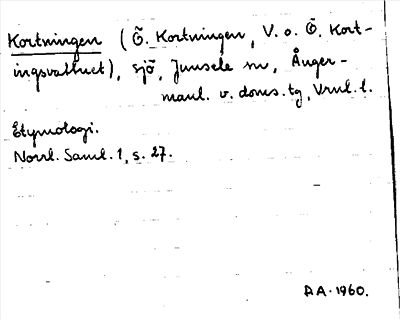 Kortningen (Ö. Kortningen, V. o. Ö. Kort-
ingsvattnet), sjö, Junsele sn, Ånger-
manl. v. doms.tg, Vrnl. l.
Etymologi.
Norrl. Saml. 1, s. 27.
AA. 1960.